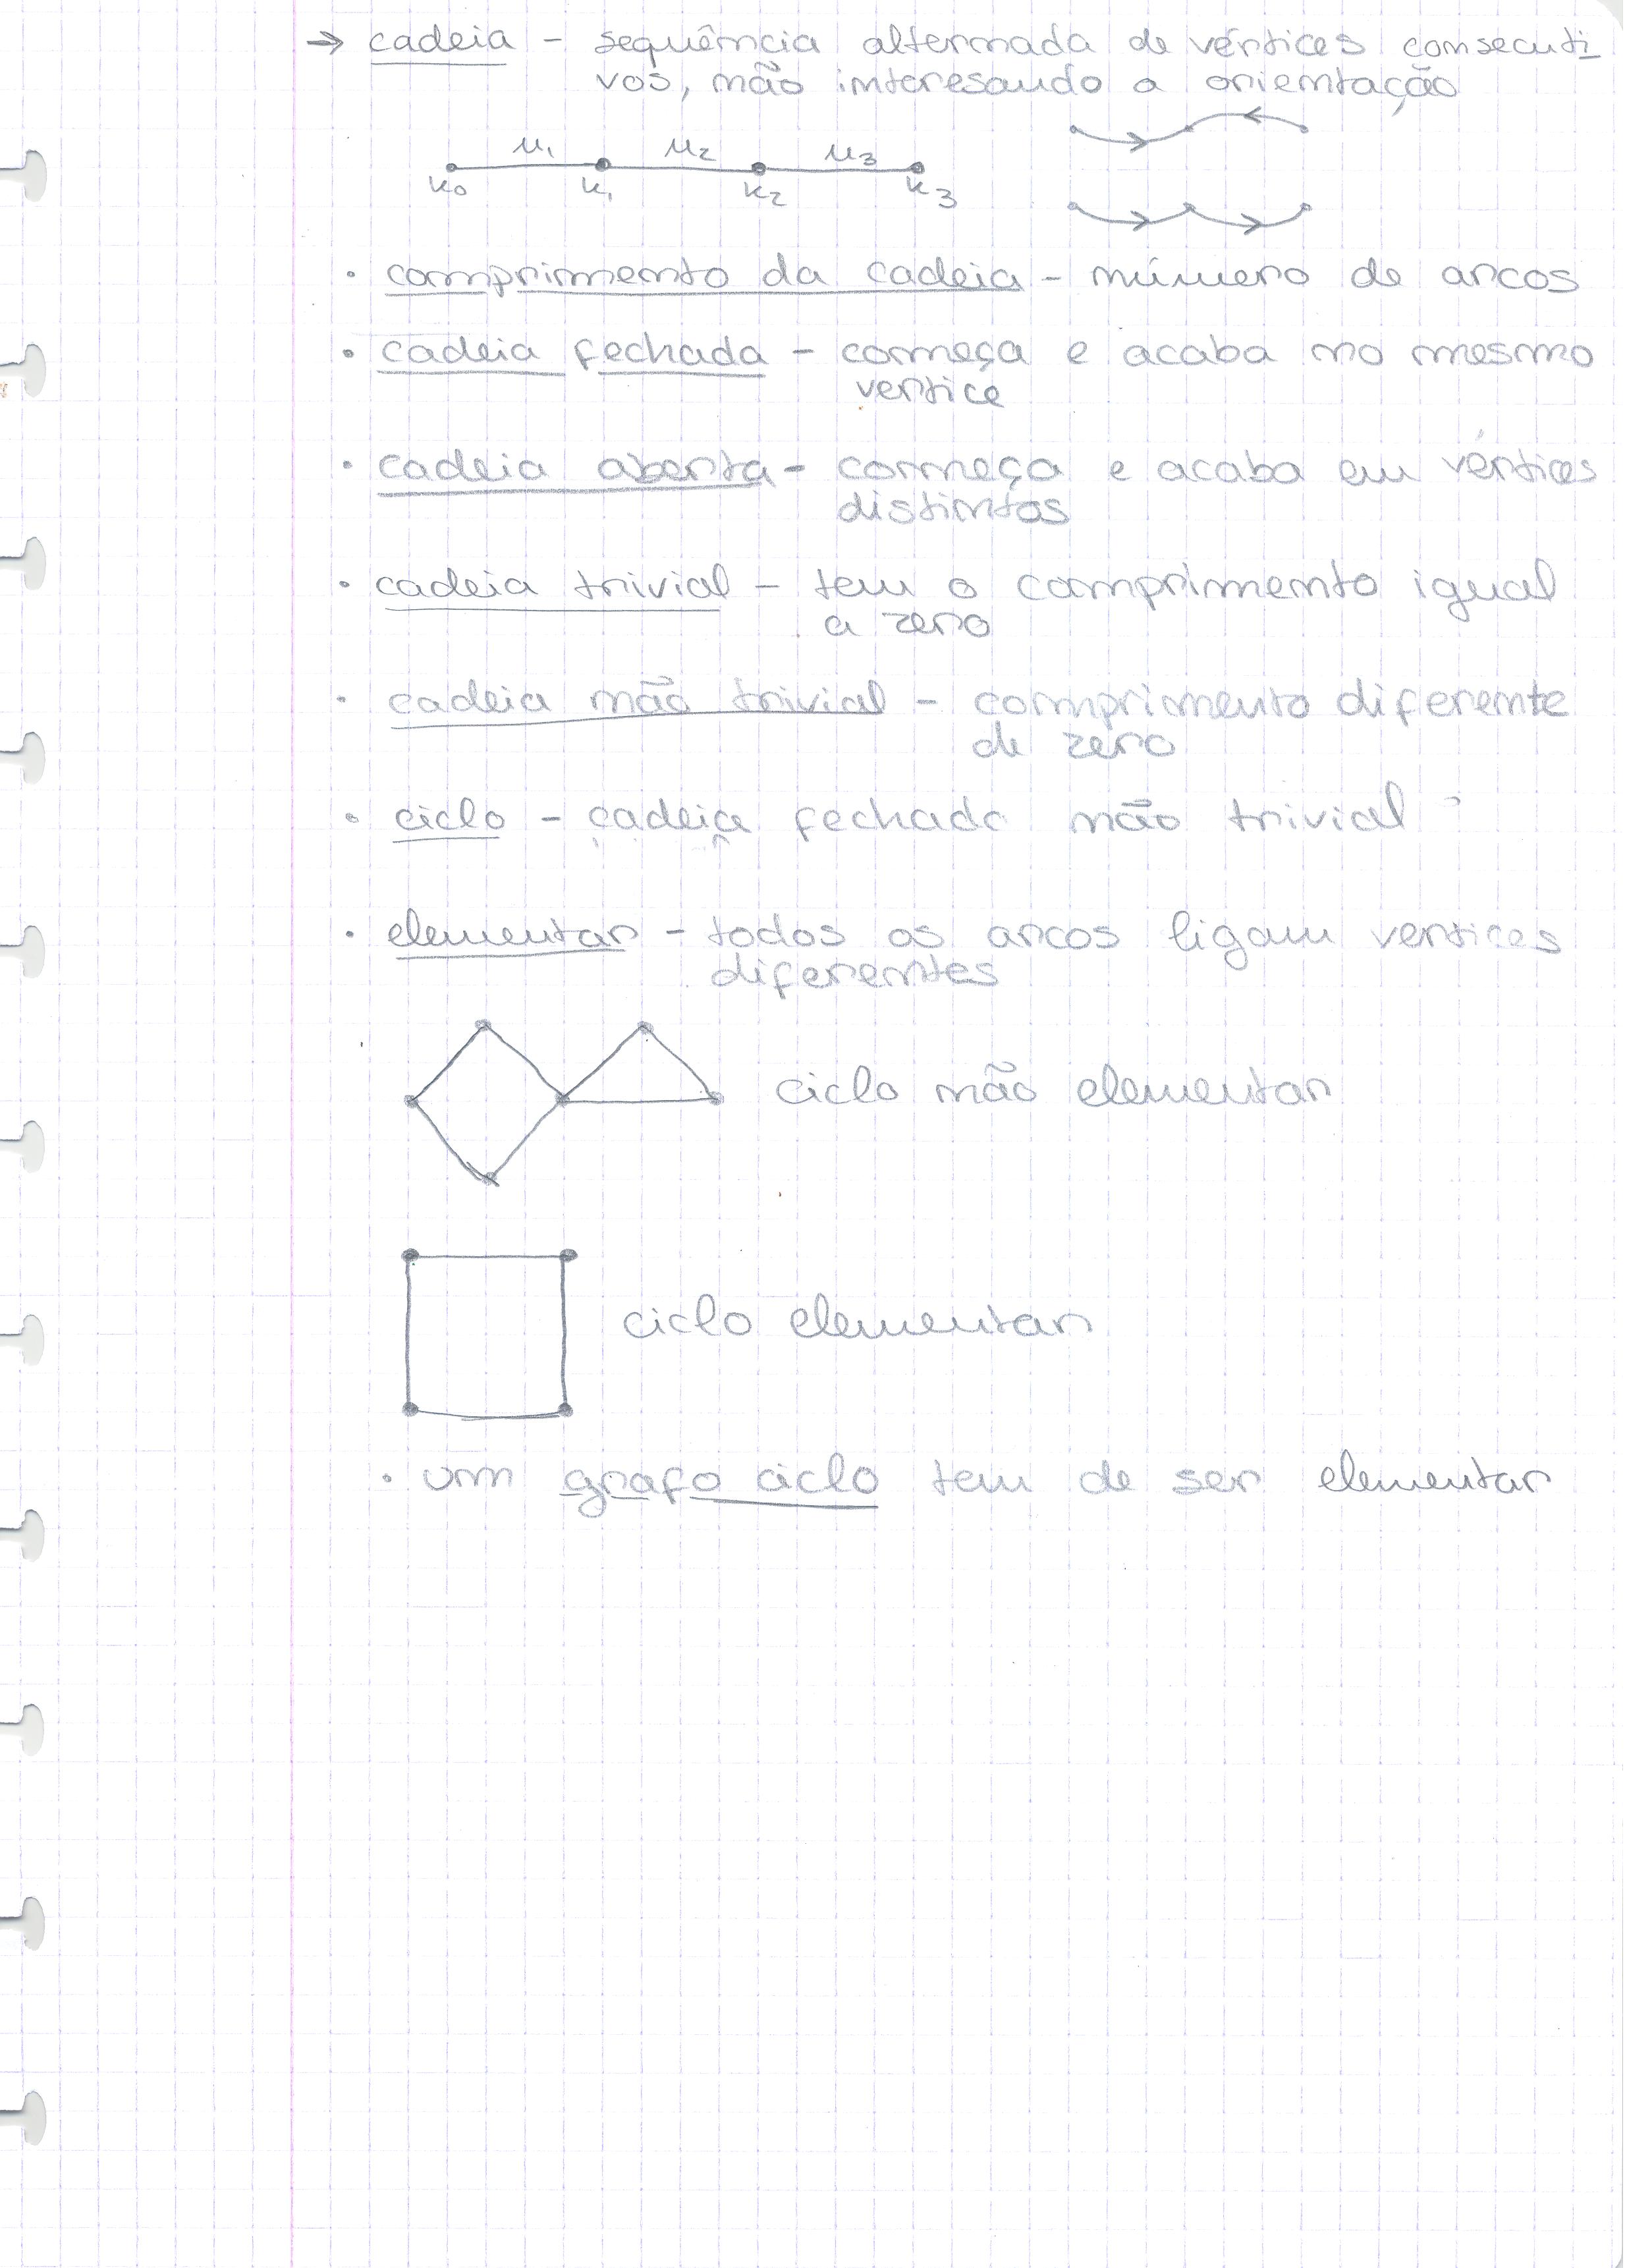 → cadeia - sequência alternada de vértices consecuti
vos, não interesando a orientação
u1 u2 u3
k0 k1 k2 k3
• comprimento da cadeia - número de arcos
• cadeia fechada - começa e acaba no mesmo
vertice
• cadeia aberta - começa e acaba em vértices
distintos
• cadeia trivial - tem o comprimento igual
a zero
• cadeia não trivial - comprimento diferente
de zero
• ciclo - cadeia fechada não trivial
• elementar - todos os arcos ligam vertices
diferentes
ciclo não elementar
ciclo elementar
• um grafo ciclo tem de ser elementar